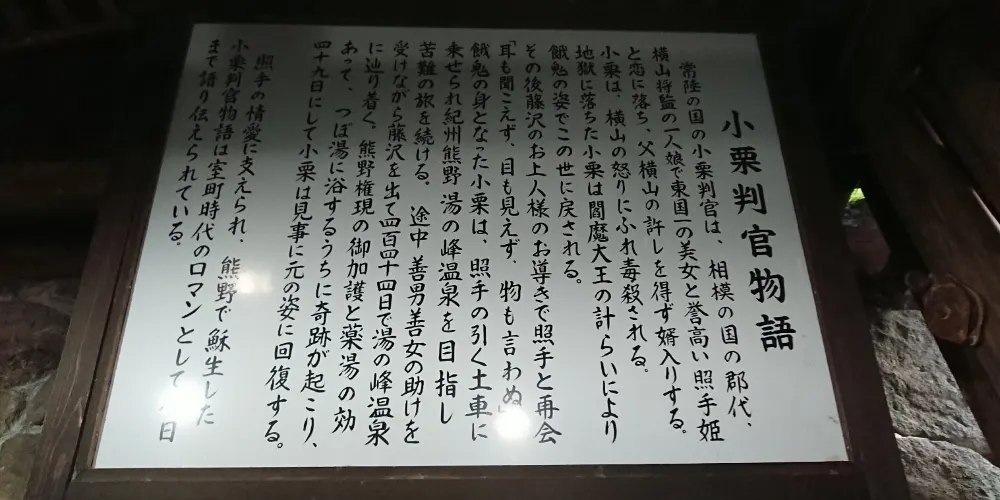 小栗判官物語
常陸の国の小栗判官は、相模の国の郡代、
横山将監の一人娘で東国一の美女と誉高い照手姫
と恋に落ち、父横山の許しを得ず婿入りする。
小栗は、横山の怒りにふれ毒殺される。
地獄に落ちた小栗は閻魔大王の計らいにより
餓鬼の姿でこの世に戻される。
その後藤沢のお上人様のお導きで照手と再会
「耳も聞こえず、目も見えず、物も言わぬ」
餓鬼の身となった小栗は、照手の引く土車に
乗せられ紀州熊野湯の峰温泉を目指し
苦難の旅を続ける。途中善男善女の助けを
受けながら藤沢を出て四百四十四日で湯の峰温泉
に辿り着く、熊野権現の御加護と薬湯の効
あって、つぼ湯に浴するうちに奇跡が起こり、
四十九日にして小栗は見事に元の姿に回復する。
照手の情愛に支えられ、熊野で蘇生した
小栗判官物語は室町時代のロマンとして 日
まで語り伝えられている。